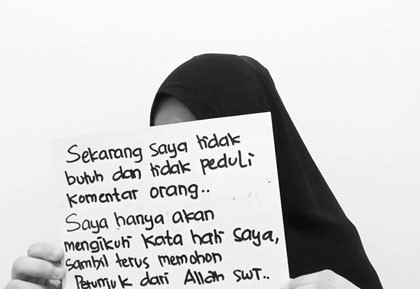 Sekarang saya tidak
butuh dan tidak peduli
komentar orang..
Saya hanya akan
mengikuti kata hati saya,
sambil terus memohon
Petunjuk dari Allah SWT..